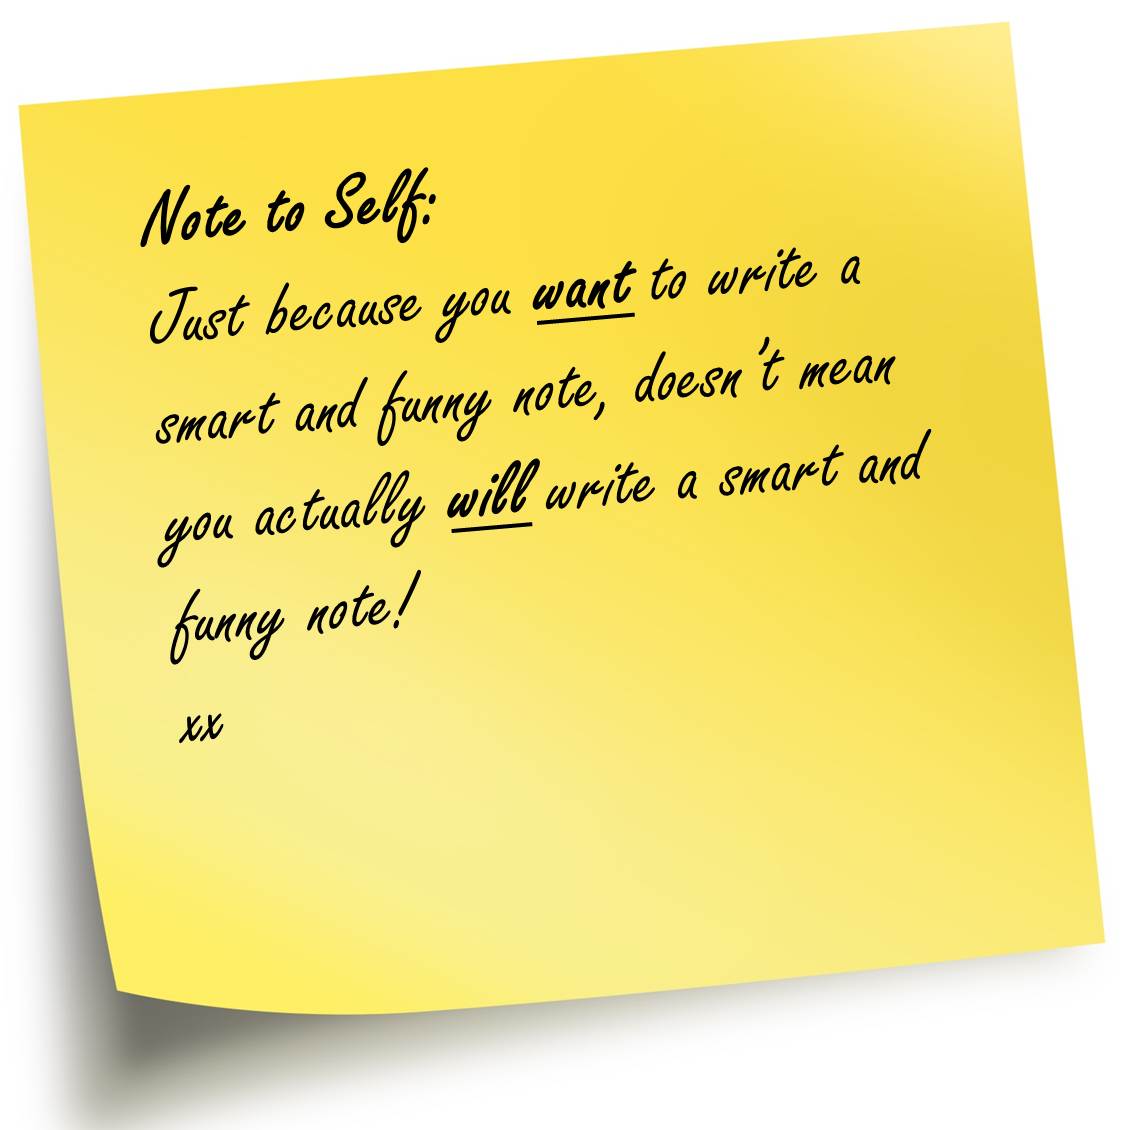 Note to Self:
Just because you want to write a
smart and funny note, doesn't mean
you actually will write a smart and
funny note!
xx